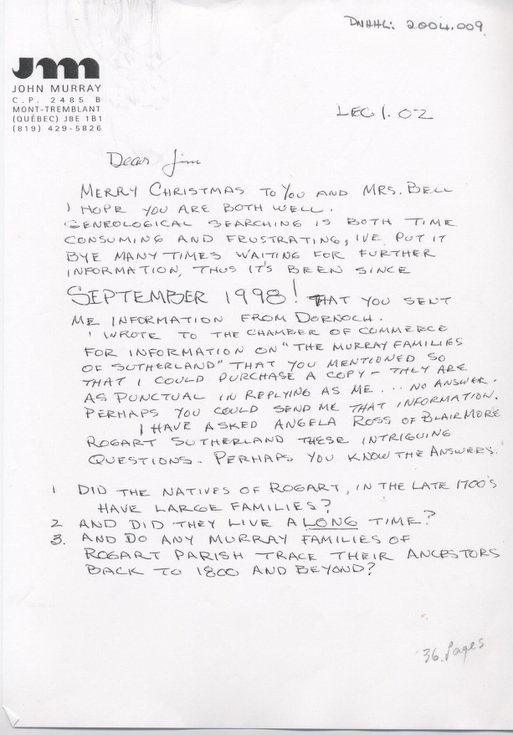 DNHHL: 2004.009
jm
JOHN MURRAY
C.P. 2485 B
MONT-TREMBLANT
(QUÉBEC) J8E 1B1
(819) 429-5826
DEC 1. 02
Dear Jim
MERRY CHRISTMAS TO YOU AND MRS. BELL
I HOPE YOU ARE BOTH WELL.
GENEOLOGICAL SEARCHING IS BOTH TIME
CONSUMING AND FRUSTRATING, IVE PUT IT
BYE MANY TIMES WAITING FOR FURTHER
INFORMATION, THUS IT'S BEEN SINCE
SEPTEMBER 1998! THAT YOU SENT
ME INFORMATION FROM DORNOCH.
I WROTE TO THE CHAMBER OF COMMERCE
FOR INFORMATION ON "THE MURRAY FAMILIES
OF SUTHERLAND" THAT YOU MENTIONED SO
THAT I COULD PURCHASE A COPY - THEY ARE
AS PUNCTUAL IN REPLYING AS ME... NO ANSWER.
PERHAPS YOU COULD SEND ME THAT INFORMATION.
I HAVE ASKED ANGELA ROSS OF BLAIRMORE
ROGART SUTHERLAND THESE INTRIGUING
QUESTIONS. PERHAPS YOU KNOW THE ANSWERS.
1 DID THE NATIVES OF ROGART, IN THE LATE 1700'S
HAVE LARGE FAMILIES?
2 AND DID THEY LIVE A LONG TIME?
3. AND DO ANY MURRAY FAMILIES OF
ROGART PARISH TRACE THEIR ANCESTORS
BACK TO 1800 AND BEYOND?
36 Pages